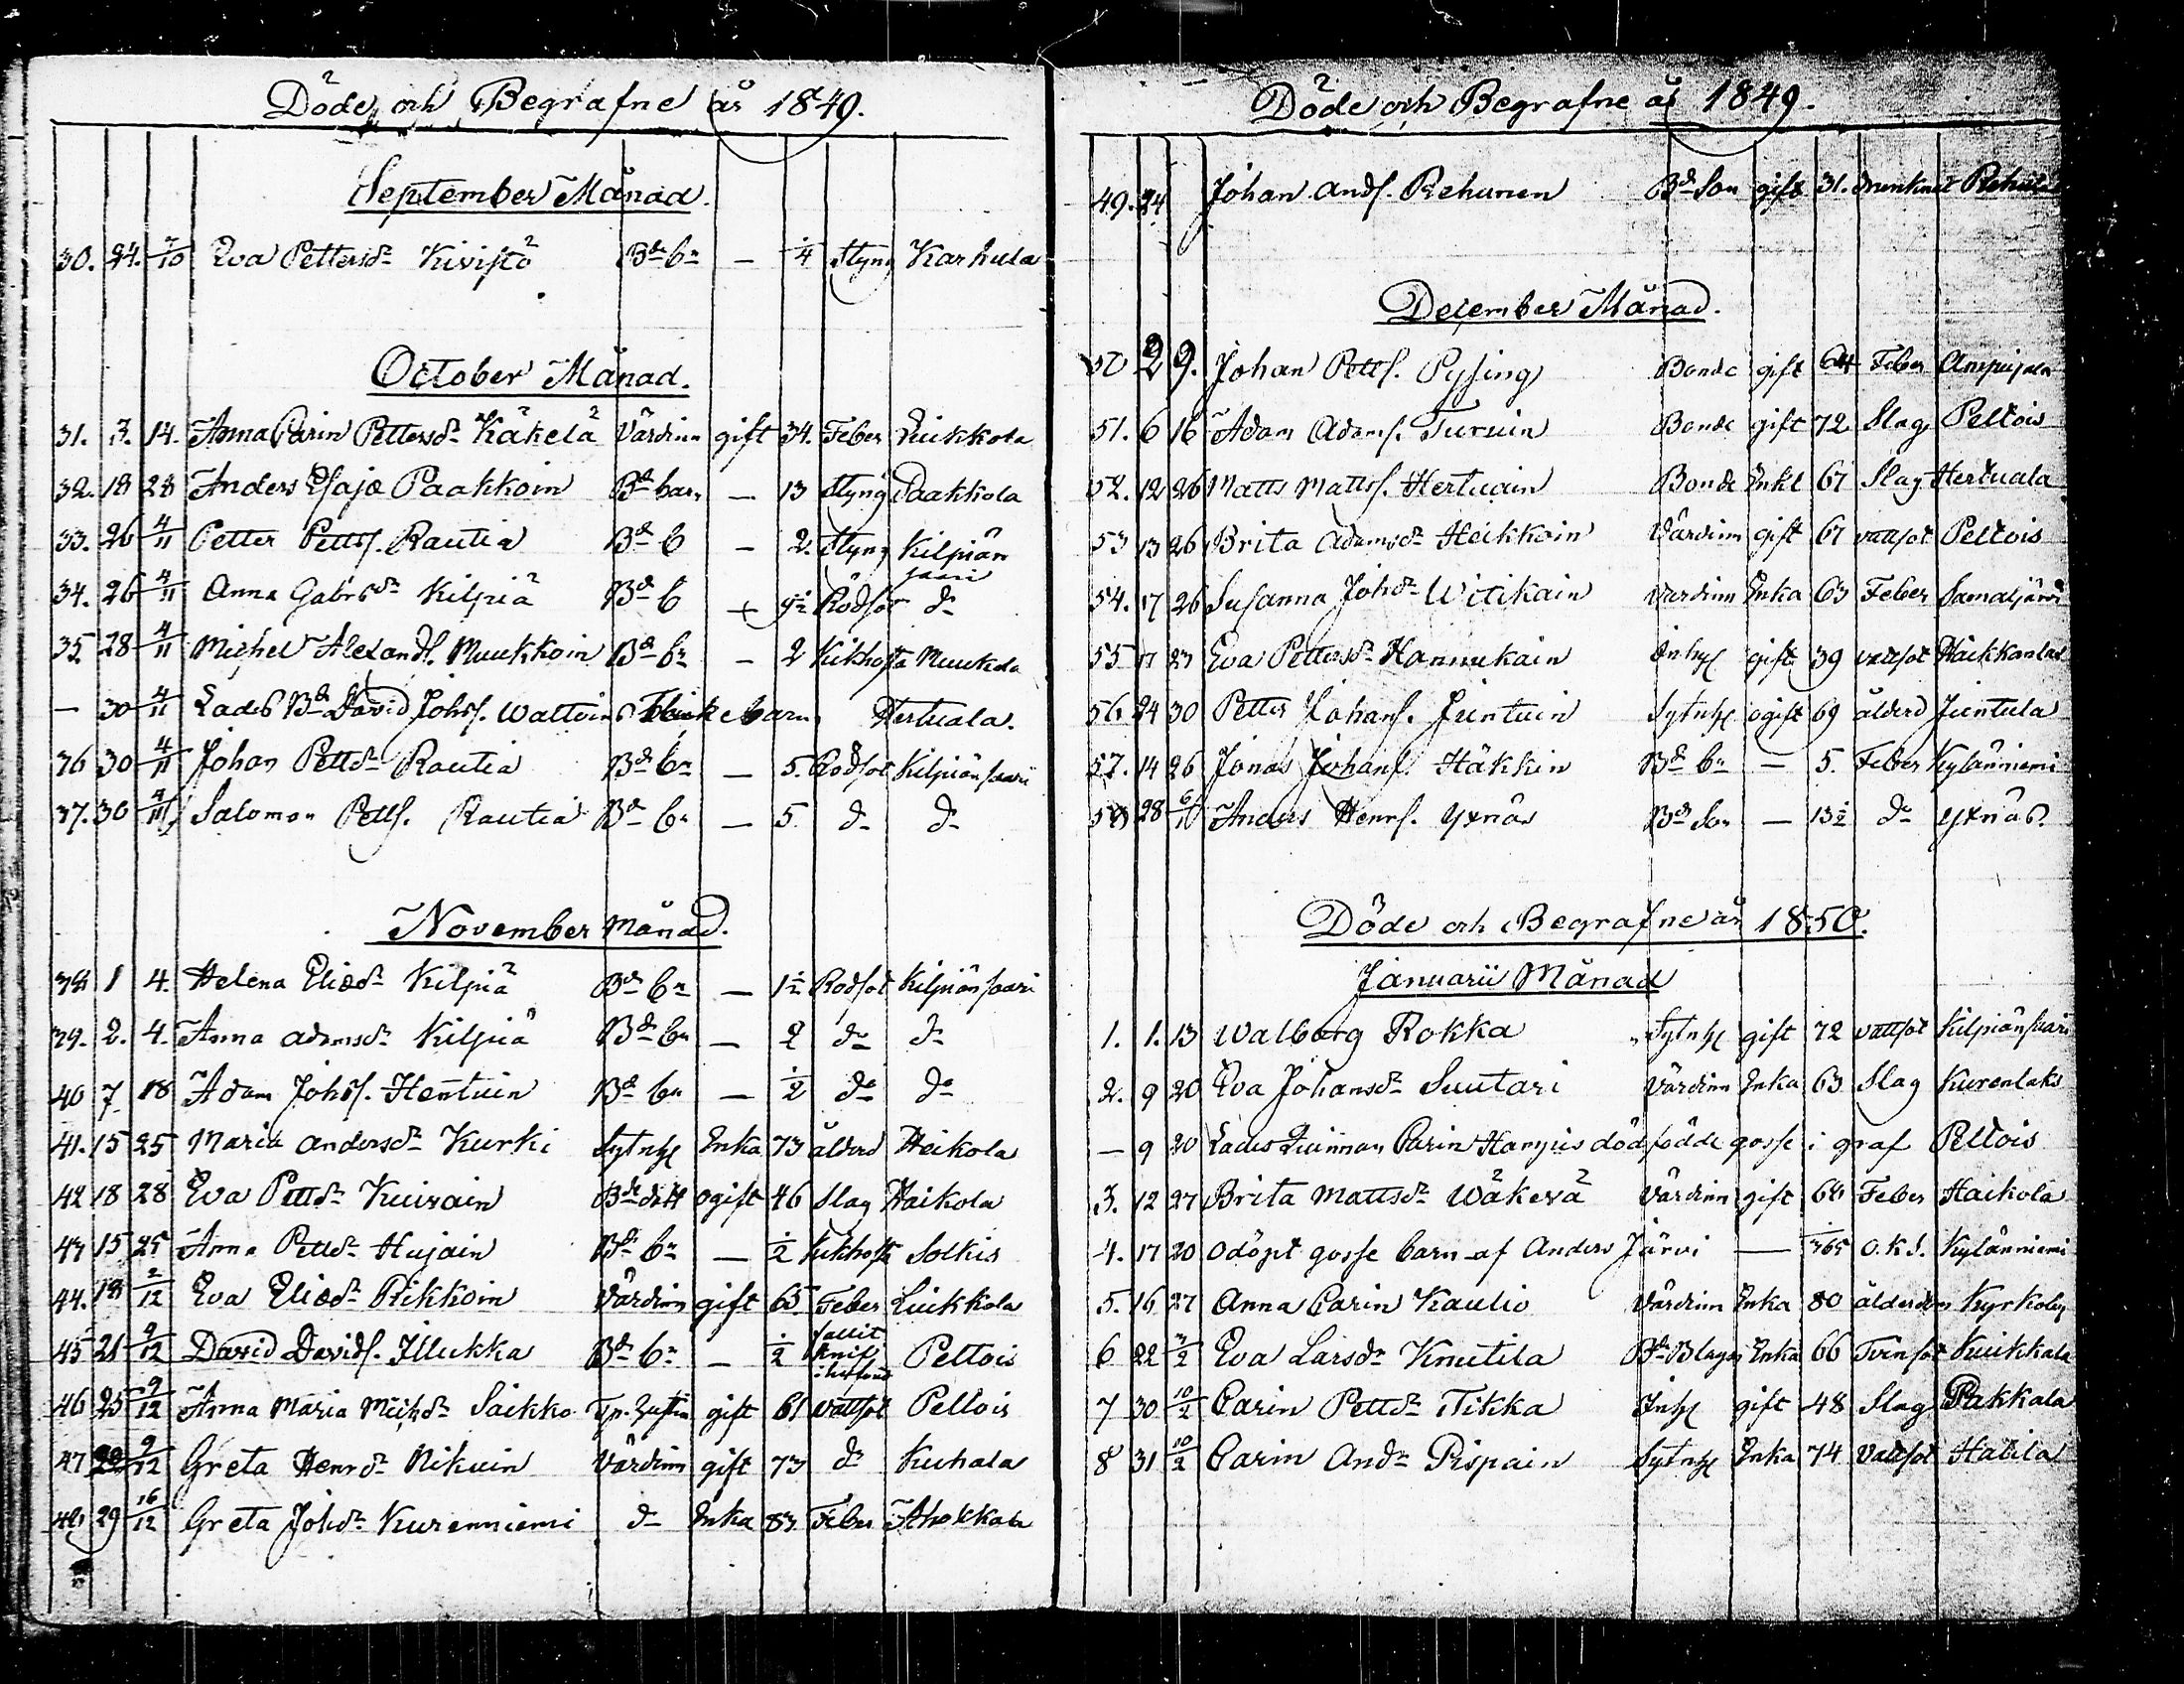 Döde och Begrafne år 1849.
September Månad.
30. 24. 7/10 Eva Pettersdr Kivistö Bd bn — 1/4 Styng Karhula
October Månad.
31. 3. 14. Anna Carin Pettersdr Käkelä Värdinn gift 34. Feber Luikkola
32. 18 28 Anders Esajæ Paakkoin Bd barn — 13 Styng Paakkola
33. 26 4/11 Petter Petts. Rautia Bd b — 2. Styng Kilpiän saari
34. 26 4/11 Anna Gabrsdr Kilpiä Bd b Rödsot do
35. 28 4/11 Michel Alexands. Muukkoin Bd bn — 2 Kikhosta Muukola
— 30 4/11 Lades Bd David Johs. Wattoins barn Hertuala.
36 30 4/11 Johan Pettdr Rautia Bd bn — 5. Rödsot Kilpiänsaari
37. 30 4/11 Salomon Petts. Rautia Bd bn — 5 do do
November Månad.
38 1 4. Helena Eliædr Kilpiä Bd bn — 1 1/2 Rödsot Kilpiänsaari
39. 2. 4. Anna Adamsdr Kilpiä Bd bn — 2 do do
40 7 18 Adam Johs. Hentuin Bd bn — 1/2 do do
41. 15 25 Maria Andersdr Kurki Sytnhj Enka 73 ålderd Heikola
42 18 28 Eva Pettdr Kuivain Bd dott ogift 46 Slag Haikola
43 15 25 Anna Pettdr Hujain Bd bn — 1/2 Kikhosta Solkis
44. 18 2/12 Eva Eliædr Rikkoin Värdinn gift 65. Feber Luikkola
45 21 9/12 David Davids. Illukka Bd bn — 1/2 fallit Peltois
46 25 9/12 Anna Maria Michdr Saikko gift 61 vattsot Peltois
47 22 9/12 Greta Henrdr Nikuin Värdinn gift 73 do Kuhala
48 29 16/12 Greta Johdr Kurenniemi do Enka 83 Feber Ahokkala
Döde och Begrafne år 1849.
49. 24 Johan Ands. Rehunen Bd Son gift 31. drunknat Rehula
December Månad.
50 2 9. Johan Petts. Pysing Bonde gift 64 Feber
51. 6 16 Adam Adams. Turuin Bonde gift 72 Slag Peltois
52. 12 26 Matts Mattss. Hertuain Bonde Enkl 67 Slag Hertuala
53 13 26 Brita Adamsdr Heikkoin Värdinn gift 67 vattsot Peltois
54. 17 26 Susanna Johdr Witikain Värdinn Enka 63 Feber Samaljärvi
55 17 23 Eva Pettersdr Hannukain Inhys gift 39 vattsot Haikkanlax
56 24 30 Petter Johans. Juntuin Sytnhj ogift 69 ålderd Juntula
57. 14 26 Jonas Johans. Häkkin Bd bn — 5. Feber Kylänniemi
58 28 6/1 Anders Henrs. Yxnäs Bd Son — 13 1/2 do Yxnäs.
Döde och Begrafne år 1850.
Januarii Månad
1. 1. 13 Walborg Rokka Sytnhj gift 72 vattsot Kilpiänsaari
2. 9 20 Eva Johansdr Suutari Värdinn Enka 63 Slag Kurenlaks
— 9 20 Lades Quinnan Carin Hanpis dödfödde gosse i graf Peltois
3. 12 27 Brita Mattsdr Wäkevä Värdinn gift 66 Feber Haikola
4. 17 20 Odöpt gosse barn af Anders Järvi — 1/365 O.K.S. Kylänniemi
5. 16 27 Anna Carin Kaulio Värdinn Enka 80 ålderdom Kyrkoby
6 22 3/2 Eva Larsdr Knutila Bd Blagg Enka 66 Tvinsot Kuikkala
7 30 10/2 Carin Pettdr Tikka Inhj gift 48 Slag Pakkala
8 31 10/2 Carin Anddr Pispain Sytnhj Enka 74 Vattsot Hatila